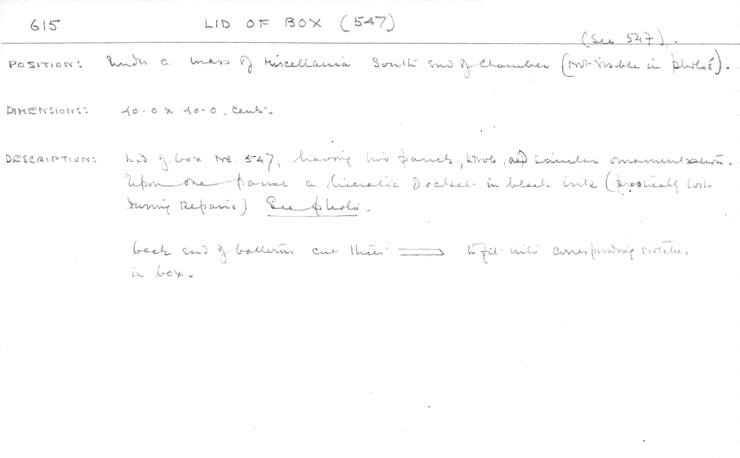 615 LID OF BOX (547)
(See 547).
POSITION: Under a mass of Miscellania South end of Chamber (not visible in photos).
DIMENSIONS: 40.0 x 40.0. cents.
DESCRIPTION: Lid of box No 547, having two panels, knob, and similar ornamentation.
Upon one panel a hieratic Docket in black ink (practically lost
during Repairs) See photo.
back end of battens cut thus to fit into corresponding notches,
in box.